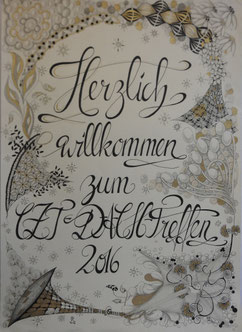 Herzlich
willkommen
zum
CZT-DACH-Treffen
2016